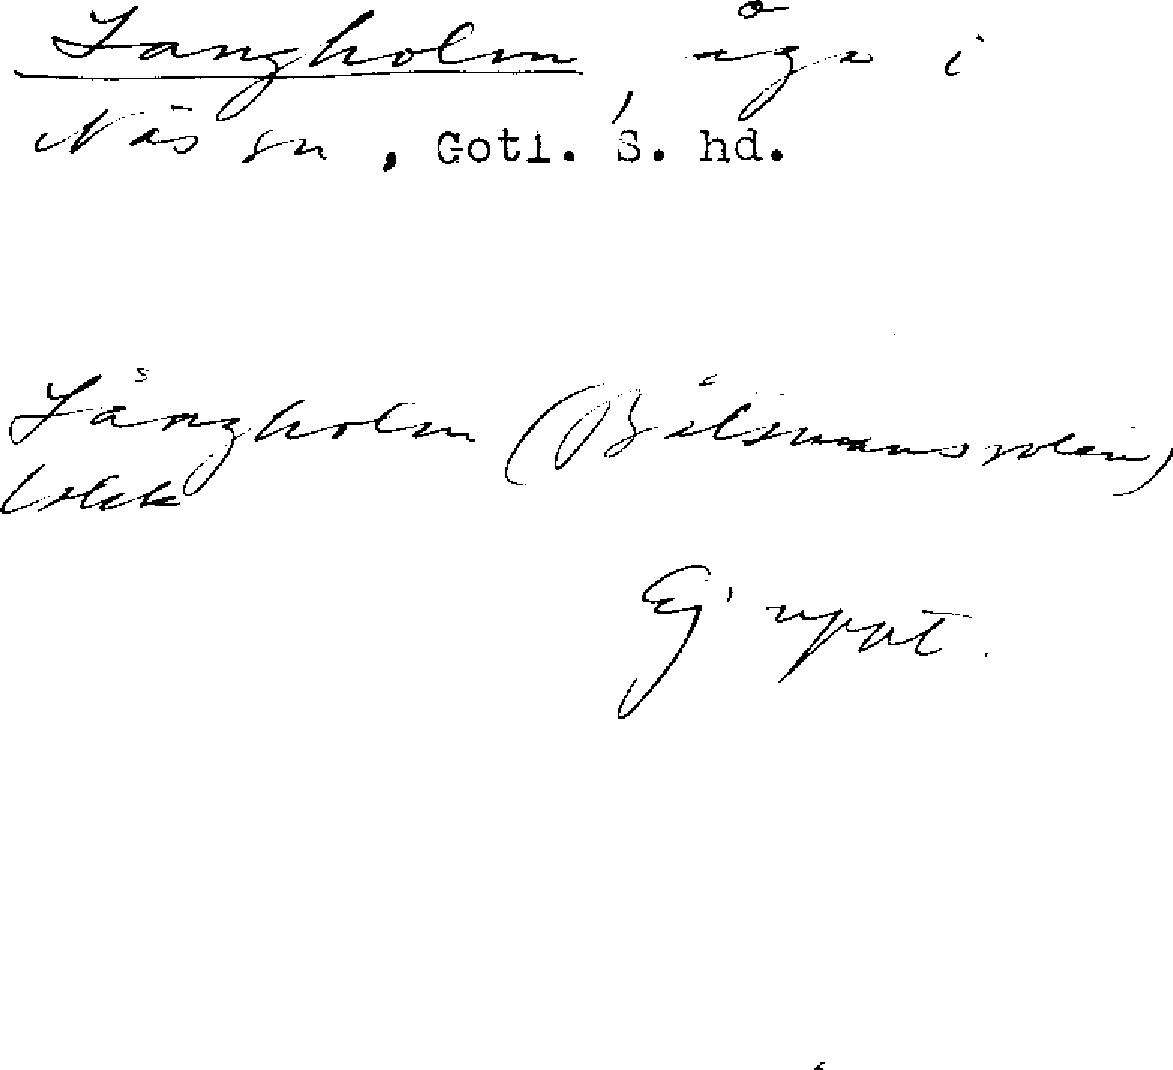 Långholm, äga i
Näs sn, Gotl. S. hd.
Långholm (Båtsmansrolen)
Ej uppt.